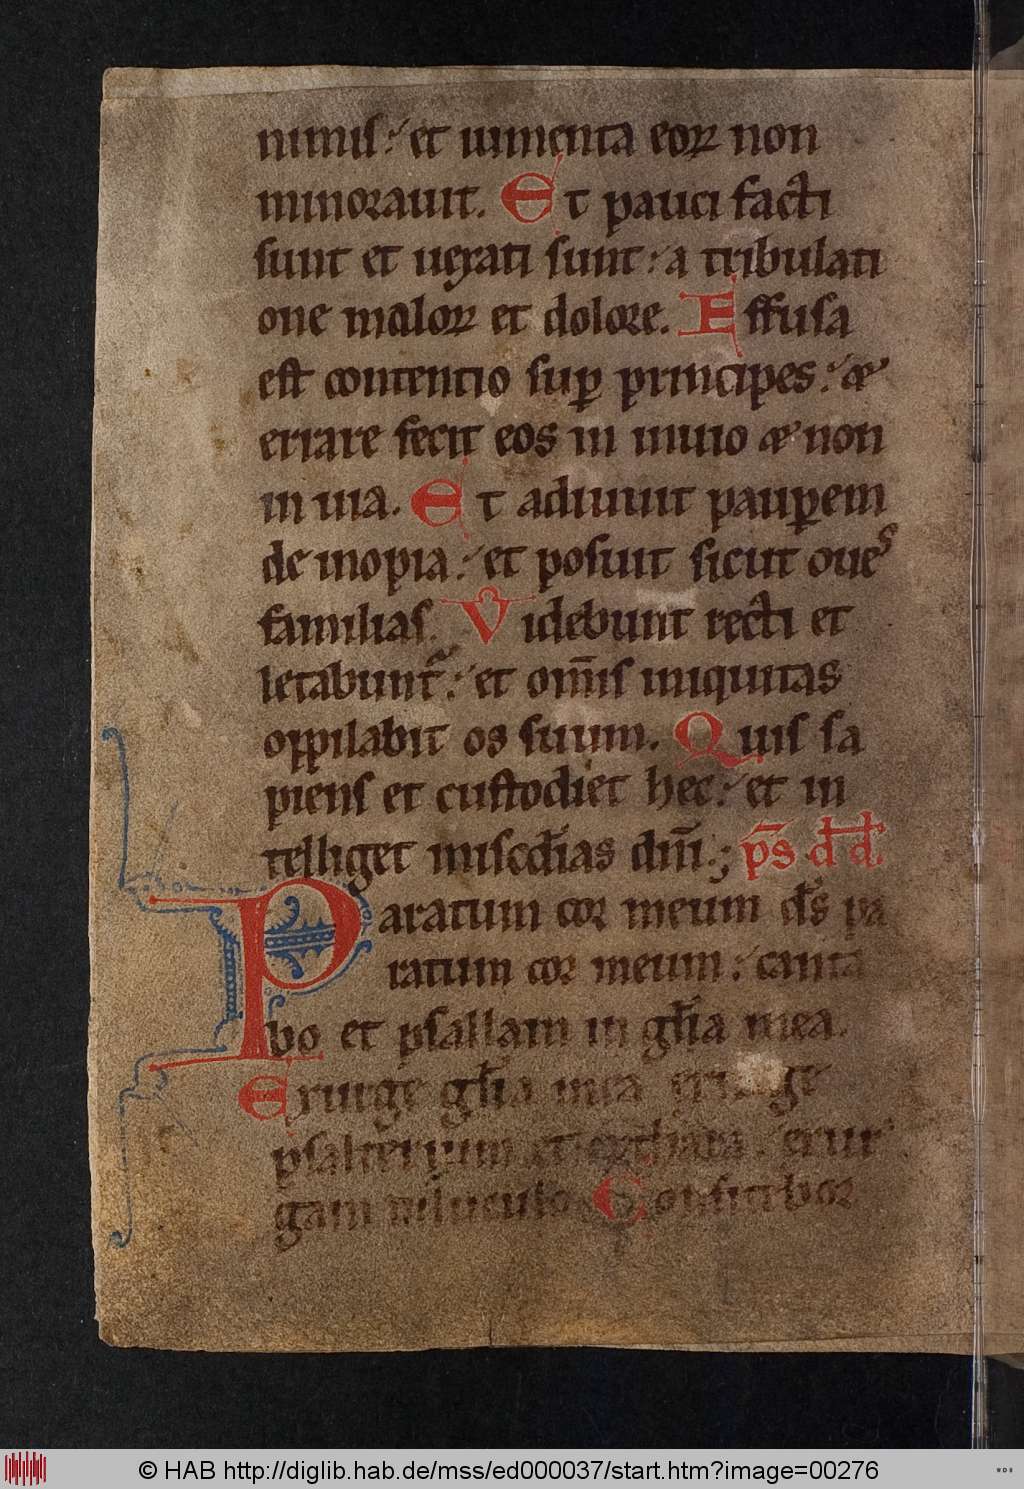 nimis: et iumenta eoꝝ non
minorauit. Et pauci facti
sunt et uexati sunt: a tribulati
one maloꝝ et dolore. Effusa
est contentio suꝑ principes: &
errare fecit eos in inuio & non
in uia. Et adiuuit pauꝑem
de inopia: et posuit sicut oues
familias. Videbunt recti et
letabunt᷑: et om̅is iniquitas
oppilabit os suum. Quis sa
piens et custodiet hec: et in
telliget misc̅dias dn̅i.; p̅s d̅d̅.
Paratum cor meum d̅s pa
ratum cor meum: canta
bo et psallam in gl̅ia mea.
Exurge gl̅ia mea exurge
psalterium et cythara: exur
gam diluculo Confitebor
© HAB http://diglib.hab.de/mss/ed000037/start.htm?image=00276